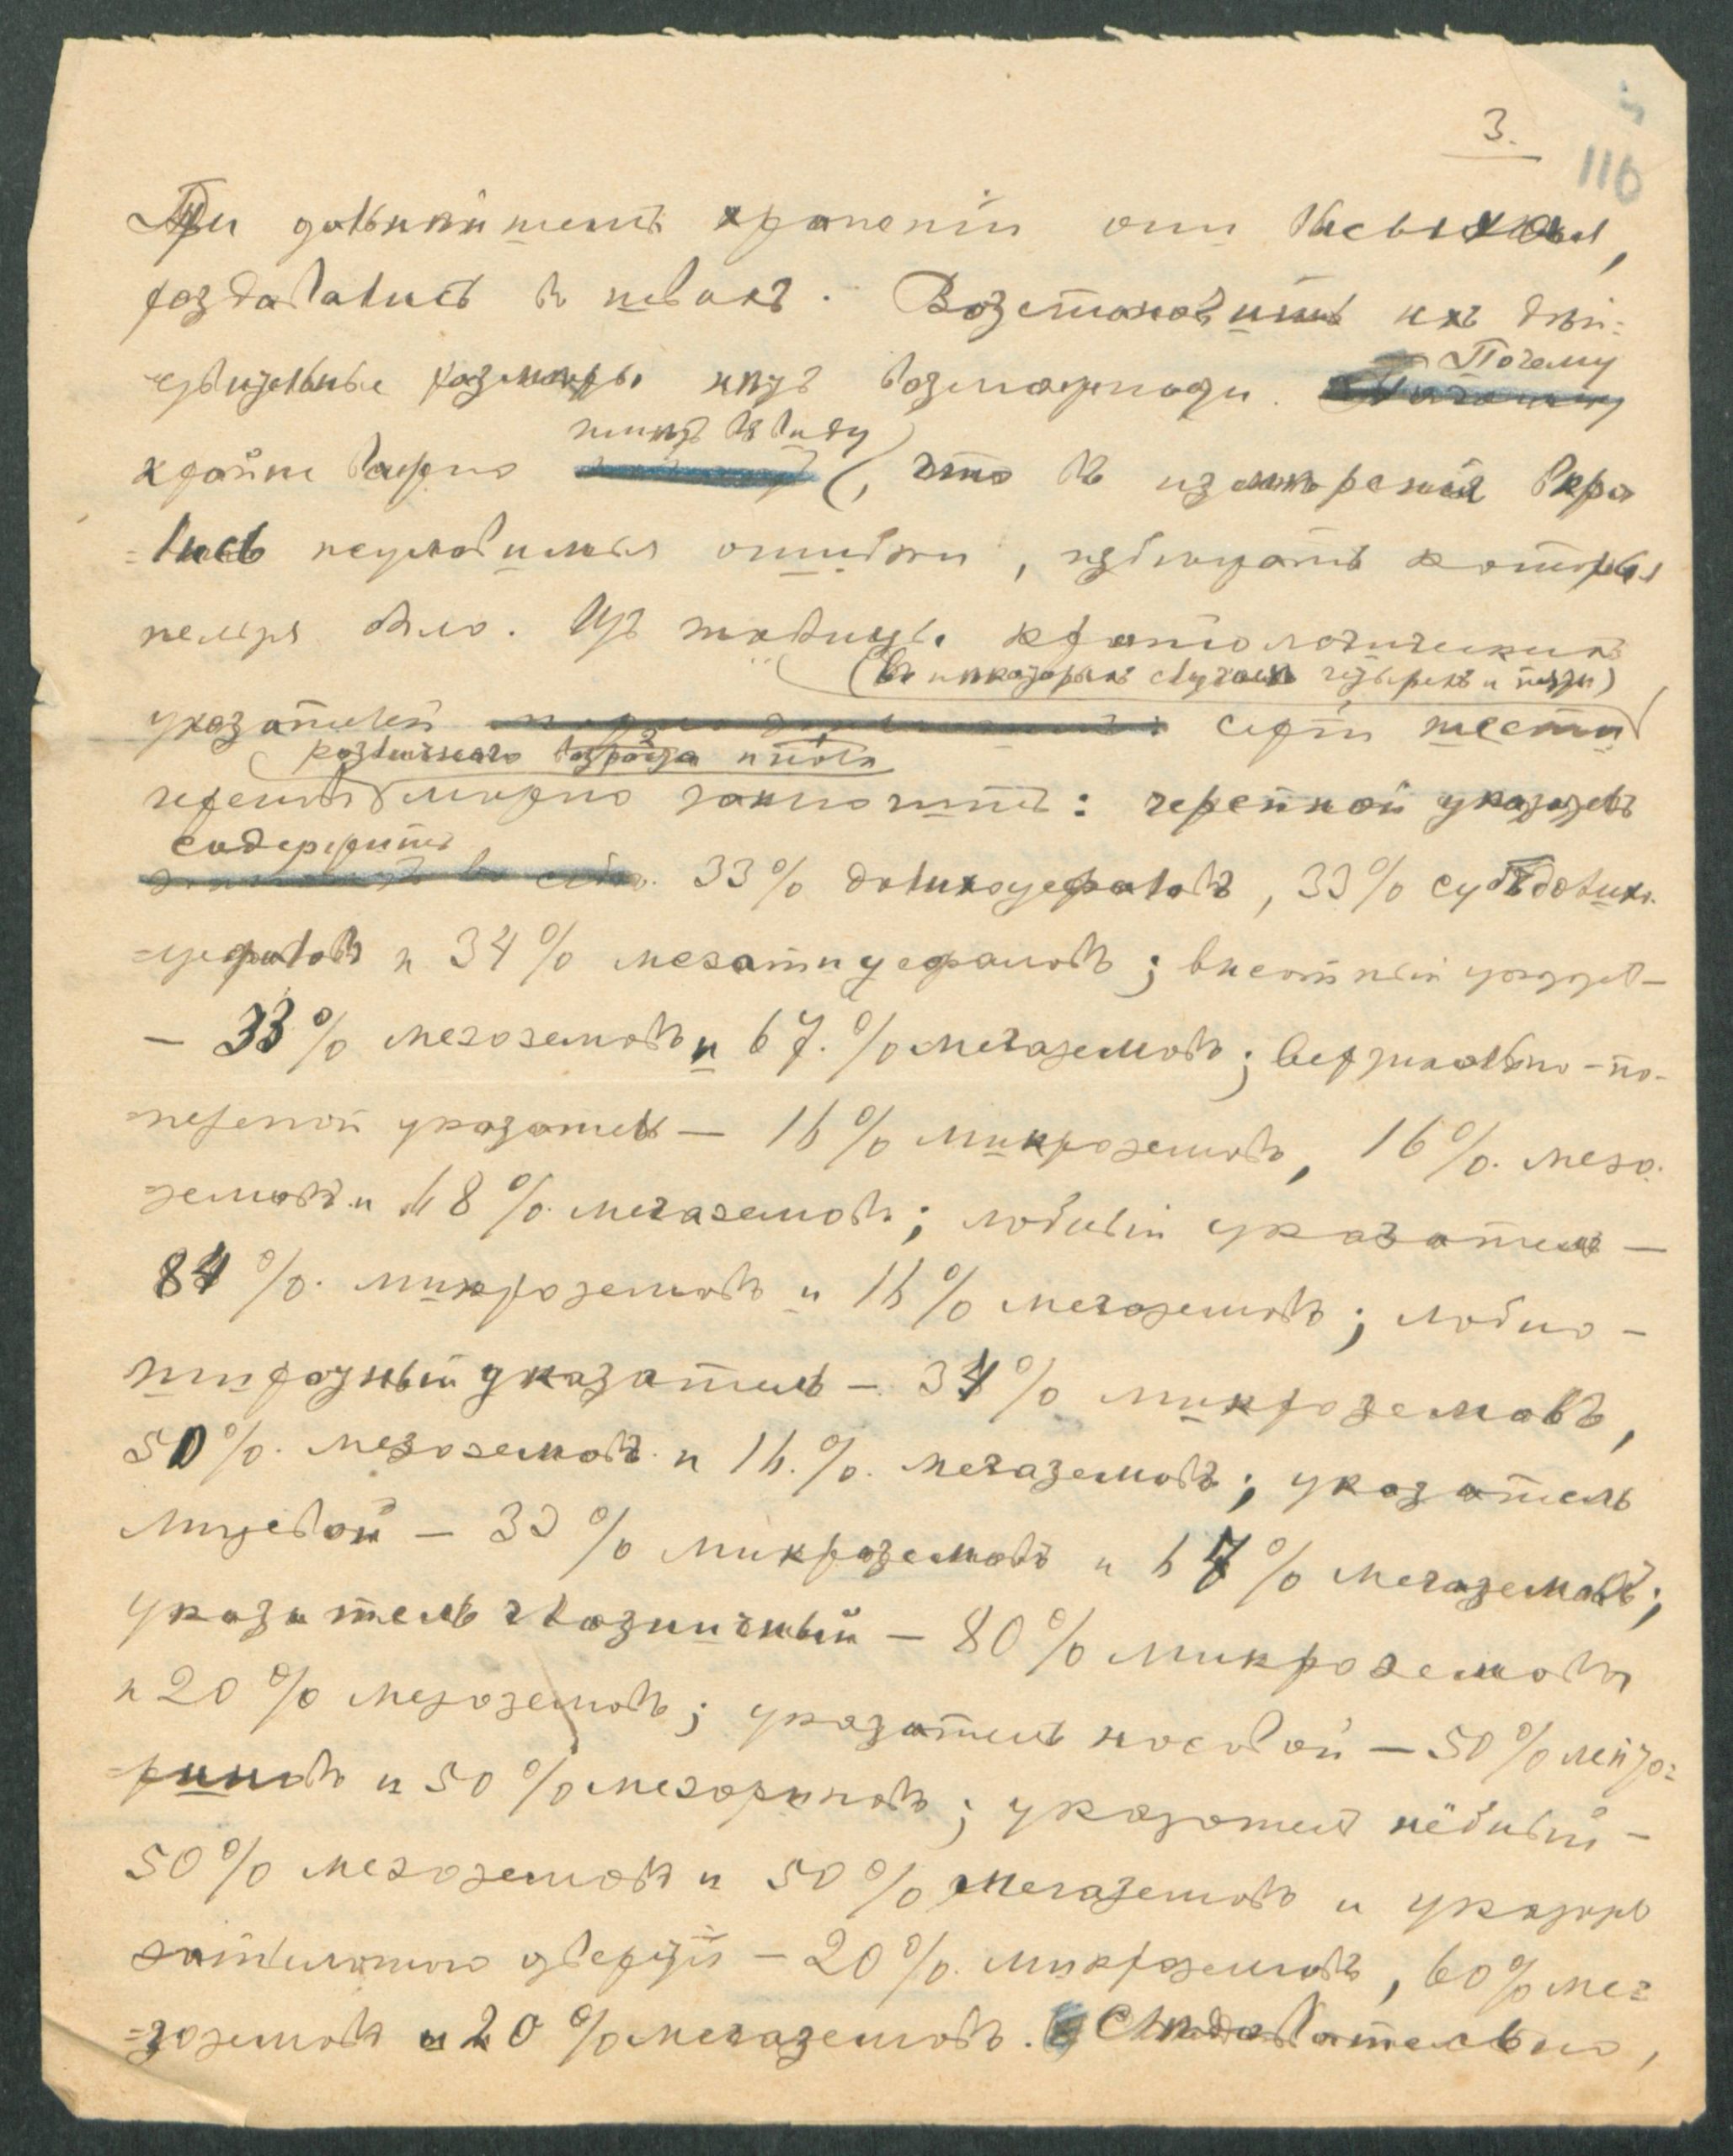 3.
116
При дальнѣйшемъ храненіи они высыхали,
раздавались въ швахъ. Возстановить ихъ дѣй=
ствительные размѣры нѣтъ возможности. Почему
крайне важно имѣть въ виду, что въ измѣренія вкра
=лись неуловимыя ошибки, избѣжать которыя
нельзя было. Изъ таблицы краніологическихъ
(въ нѣкоторыхъ случаяхъ четырехъ и пяти)
указателей серіи шести
различнаго возраста и пола
череповъ можно заключить: черепной указатель
содержитъ 33% долихоцефаловъ, 33% субдолихо
=цефаловъ и 34% мезатицефаловъ; высотный указат. –
– 33% мезоземовъ и 67.% мегаземовъ; вертикально-по-
=перечный указатель – 16% микроземовъ, 16%. мезо.
=земовъ и 68%. мегаземовъ; лобный указатель –
84%. микроземовъ и 16% мегаземовъ; лобно –
широтный указатель – 34% микроземовъ,
50%. мезоземовъ и 16.%. мегаземовъ; указатель
лицевой – 33% микроземовъ и 67% мегаземовъ;
указатель глазничный – 80% микроземовъ
и 20% мезоземовъ; указатель носовой – 50% лепто=
=риновъ и 50% мезориновъ; указатель нёбный –
50% мезоземовъ и 50% мегаземовъ и указат.
затылочного отверстія – 20%. микроземовъ, 60% ме=
=зоземовъ и 20% мегаземовъ. Слѣдовательно,